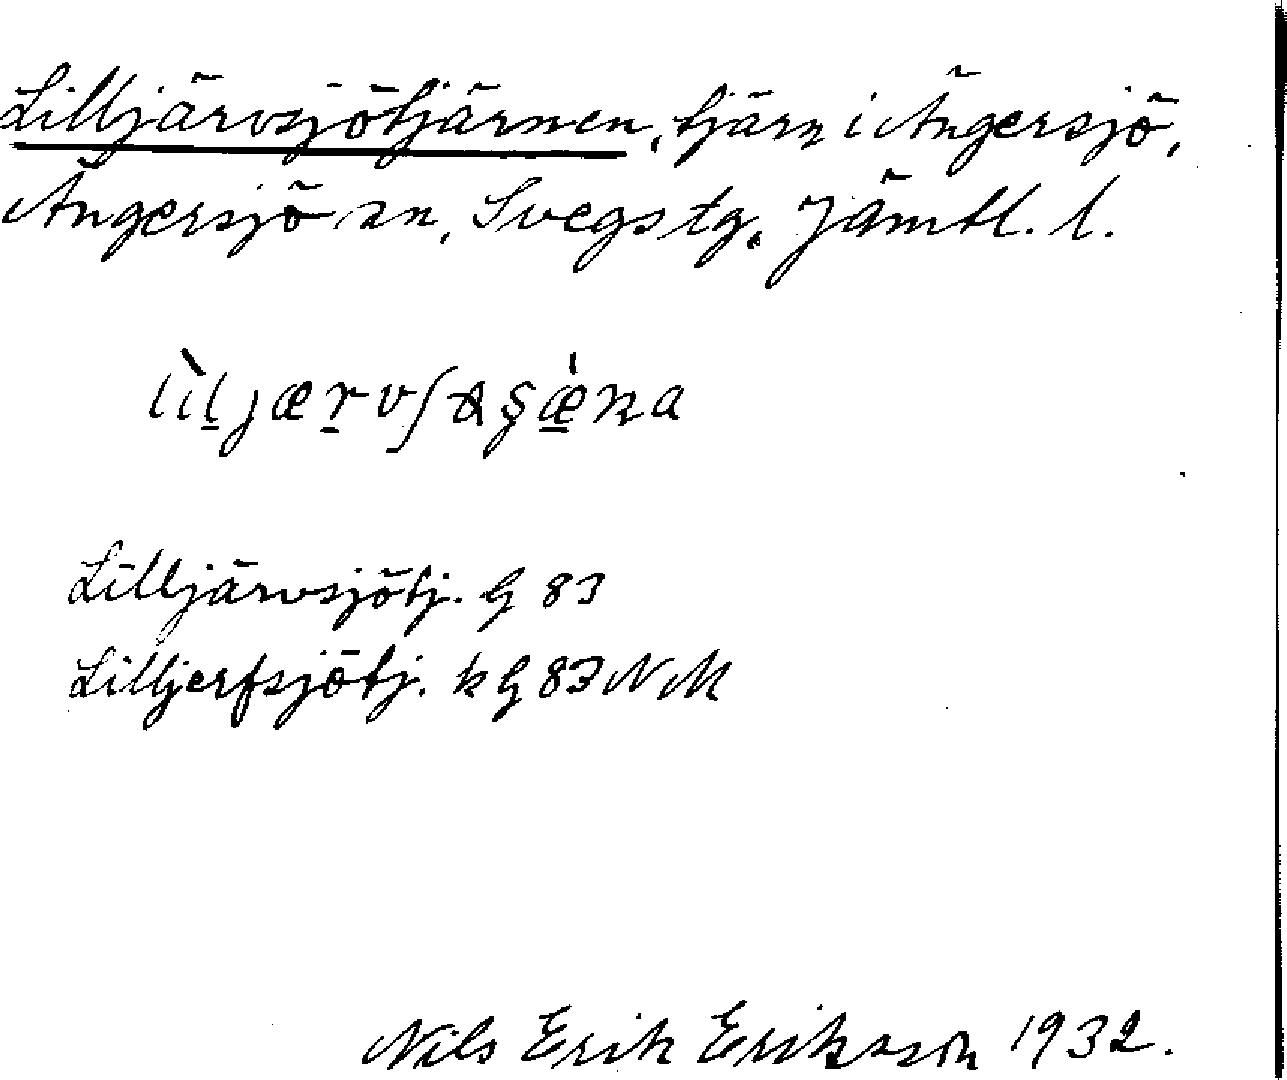 Lilljärvsjötjärnen, tjärn i Ängersjö,
Ängersjö sn, Svegs tg. Jämtl. l.
Lilljärvsjötj. G 83
Lilljerfsjötj. k G 83 N M
Nils Erik Eriksson 1932.